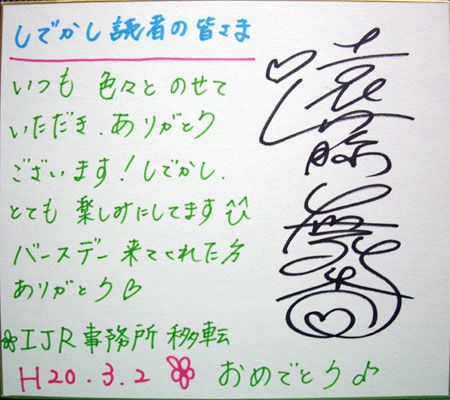 しでかし読者の皆さま
いつも 色々と のせて
いただき、ありがとう
ございます！しでかし、
とても 楽しみにしてます
バースデー 来てくれた方
ありがとう♡
IJR事務所 移転
H20.3.2 おめでとう♪